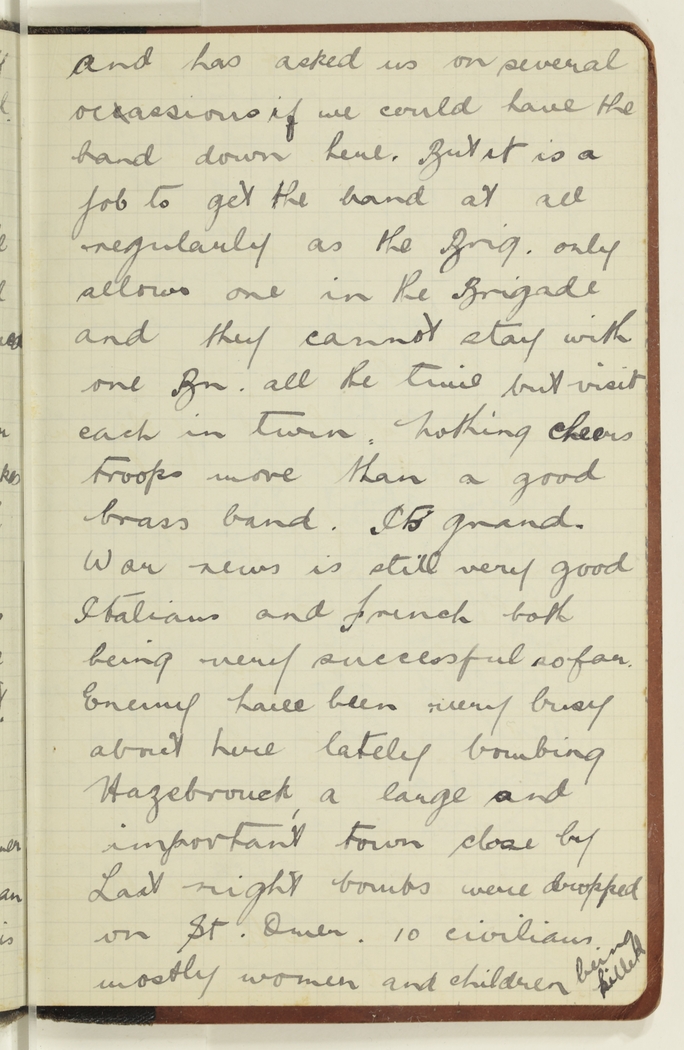 and has asked us on several
occassions if we could have the
band down here. But it is a
job to get the band at all
regularly as the Brig. only
allows one in the Brigade
and they cannot stay with
one Bn. all the time but visit
each in turn. Nothing cheers
troops more than a good
brass band. Its grand.
War news is still very good
Italians and French both
being very successful so far.
Enemy have been very busy
about here lately bombing
Hazebrouck, a large and
important town close by
Last night bombs were dropped
on St. Omer. 10 civilians
mostly women and children being
killed